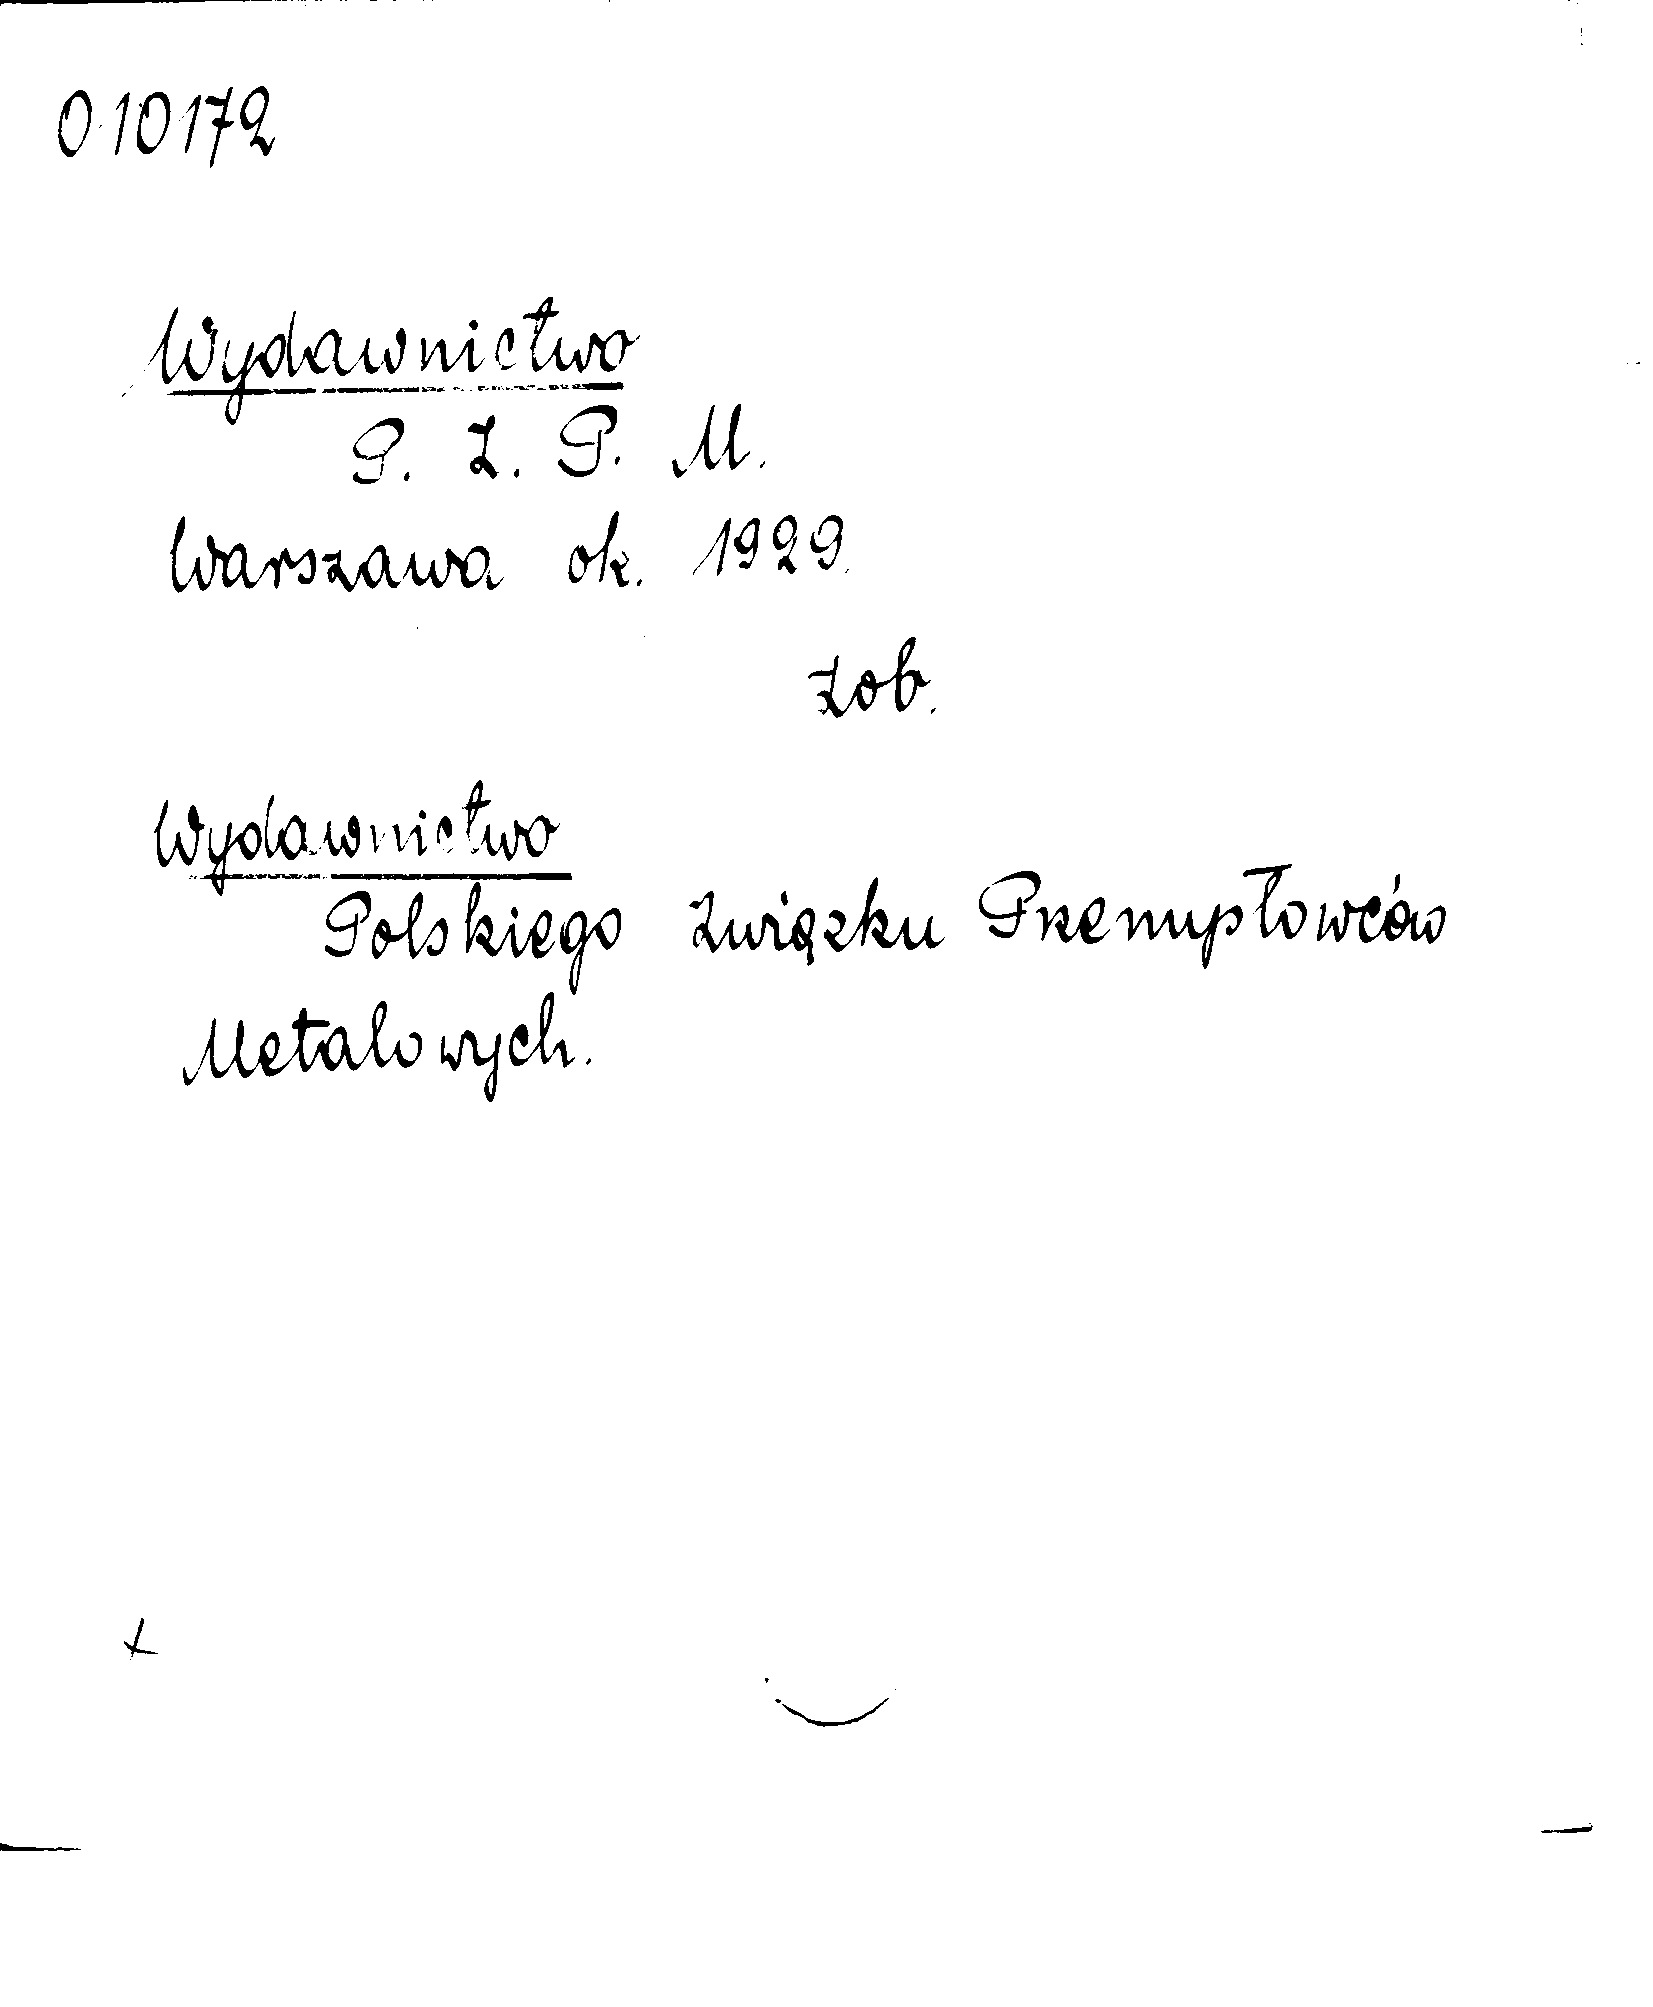 010172
Wydawnictwo
P. Z. P. M.
Warszawa ok. 1929.
zob.
Wydawnictwo
Polskiego Związku Przemysłowców
Metalowych.